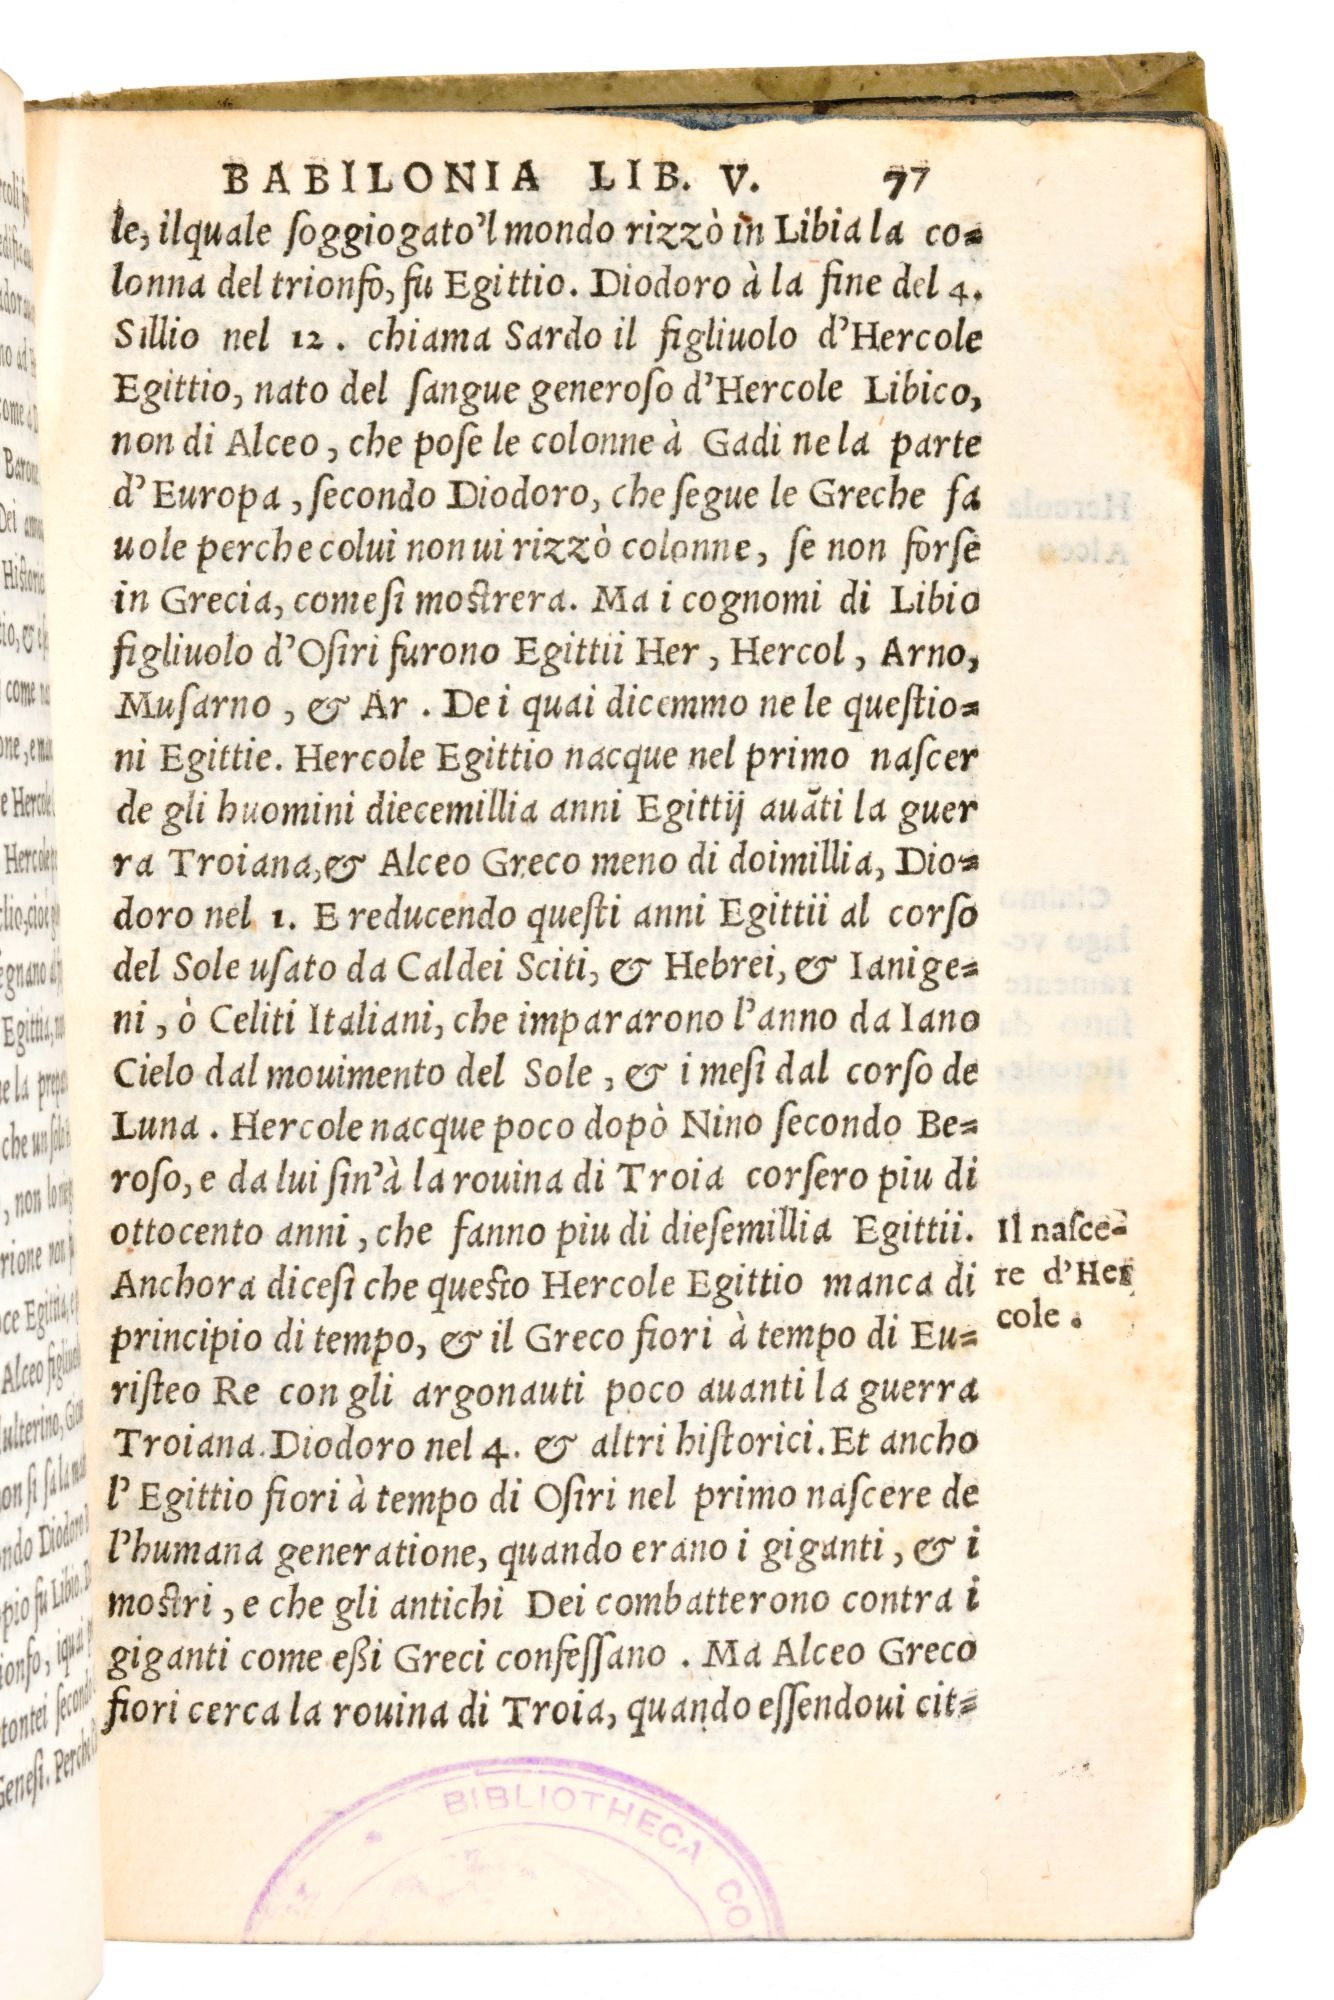 BABILONIA LIB. V. 77
le, ilquale ſoggiogato'l mondo rizzò in Libia la co-
lonna del trionfo, fu Egittio. Diodoro à la fine del 4.
Sillio nel 12. chiama Sardo il figliuolo d'Hercole
Egittio, nato del ſangue generoſo d'Hercole Libico,
non di Alceo, che poſe le colonne à Gadi ne la parte
d'Europa, ſecondo Diodoro, che ſegue le Greche fa
uole perche colui non ui rizzò colonne, ſe non forſe
in Grecia, come ſi moſtrera. Ma i cognomi di Libio
figliuolo d'Oſiri furono Egittii Her, Hercol, Arno,
Muſarno, & Ar. De i quai dicemmo ne le queſtio-
ni Egittie. Hercole Egittio nacque nel primo naſcer
de gli huomini diecemillia anni Egittij auāti la guer
ra Troiana, & Alceo Greco meno di doimillia, Dio-
doro nel 1. E reducendo queſti anni Egittii al corſo
del Sole uſato da Caldei Sciti, & Hebrei, & Ianige-
ni, ò Celiti Italiani, che impararono l'anno da Iano
Cielo dal mouimento del Sole, & i meſi dal corſo de
Luna. Hercole nacque poco dopò Nino ſecondo Be-
roſo, e da lui ſin'à la rouina di Troia corſero piu di
ottocento anni, che fanno piu di dieſemillia Egittii.
Anchora diceſi che queſto Hercole Egittio manca di
principio di tempo, & il Greco fiori à tempo di Eu-
riſteo Re con gli argonauti poco auanti la guerra
Troiana. Diodoro nel 4. & altri hiſtorici. Et ancho
l'Egittio fiori à tempo di Oſiri nel primo naſcere de
l'humana generatione, quando erano i giganti, & i
moſtri, e che gli antichi Dei combatterono contra i
giganti come eßi Greci confeſſano. Ma Alceo Greco
fiori cerca la rouina di Troia, quando eſſendoui cit-
Il naſce-
re d'Her
cole.
BIBLIOTHECA CO